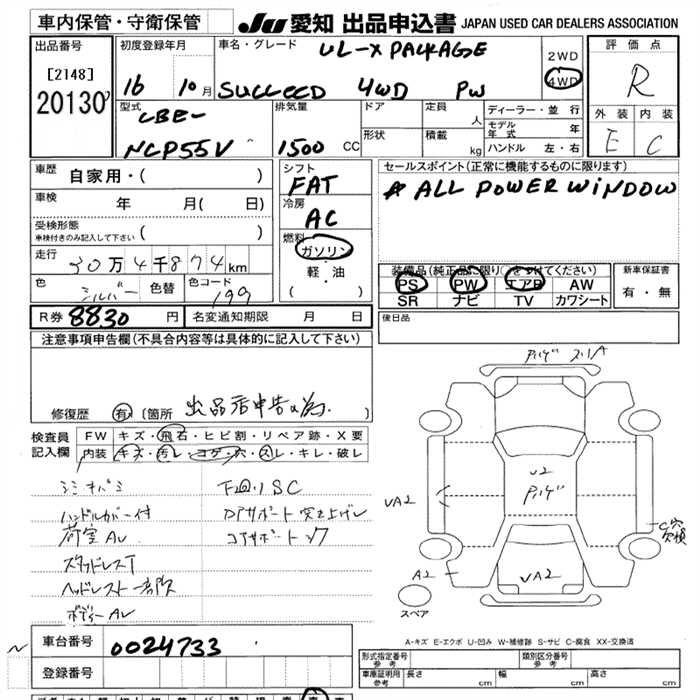 車内保管・守衛保管 JU 愛知 出品申込書 JAPAN USED CAR DEALERS ASSOCIATION
出品番号
[2148]
20130
初度登録年月
16 10月
車名・グレード UL-X PACKAGE
SUCCEED 4WD PW
2WD
4WD
評価点
R
外装 内装
E C
型式 CBE-
NCP55V
排気量
1500 CC
ドア
形状
定員 人
積載 kg
ディーラー・並行
モデル年式 年
ハンドル 左・右
車歴
自家用・( )
車検 年 月( 日)
受検形態
車検付きのみ記入して下さい ( )
走行 30万4千874km
色 シルバー 色替 色コード 199
シフト
FAT
冷房
AC
燃料
ガソリン
・
軽・油
( )
セールスポイント(正常に機能するものに限ります)
ALL POWER WINDOW
装備品(純正品に限り○をつけてください)
PS PW エアB AW
SR ナビ TV カワシート
新車保証書
有・無
R券 8830 円 名変通知期限 月 日
後日品
注意事項申告欄(不具合内容等は具体的に記入して下さい)
修復歴 有 [箇所 出品店申告の為
検査員
記入欄
FW キズ・飛石・ヒビ割・リペア跡・X要
内装 キズ・汚レ・コゲ・穴・スレ・キレ・破レ
下回りSC
ハンドルカバー付
荷室AU
スタッドレスT
ボディーAU
U2
UA2
UA2
A2
C穴
スペア
A-キズ E-エクボ U-凹み W-補修跡 S-サビ C-腐食 XX-交換済
車台番号 0024733
登録番号
形式指定番号
参考
類別区分番号
参考
車庫証明用
参考
長さ cm 幅 cm 高さ cm